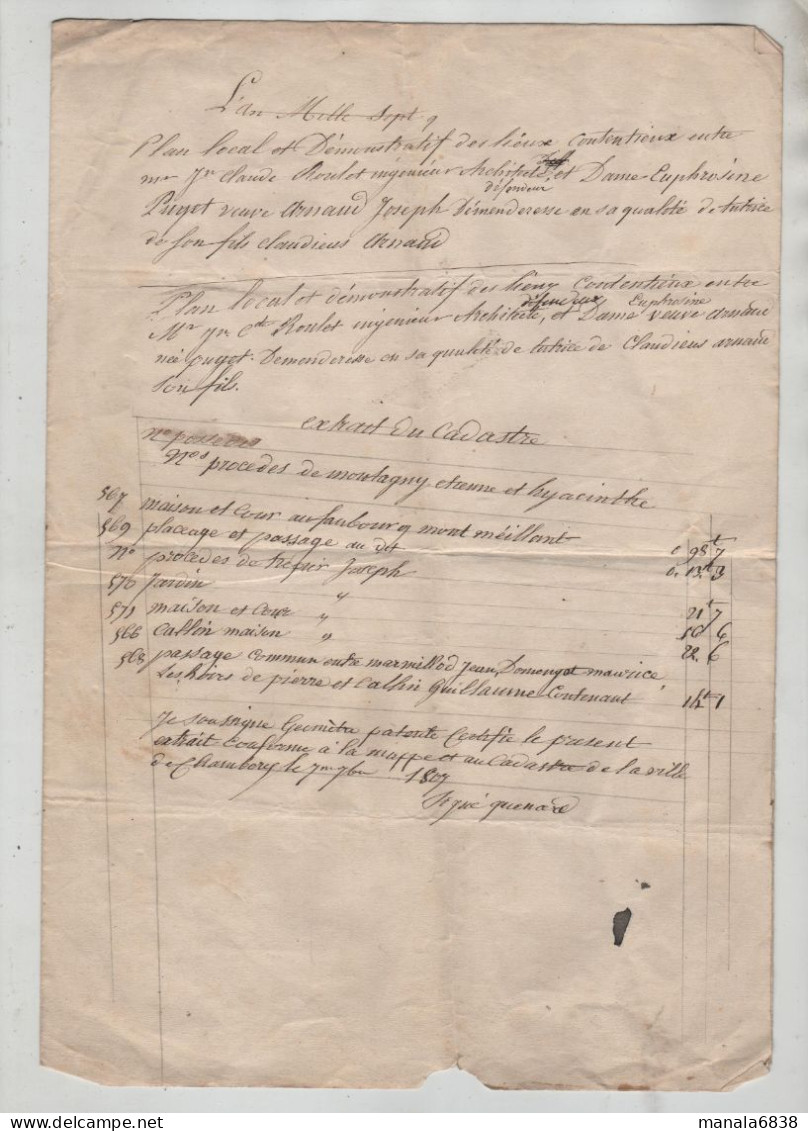 L'an Mille Sept 9
Plan local et Démonstratif des lieux Contentieux entre
mr Jn Claude Roulet ingénieur Architecte et Dame Euphrosine
défendeur
Puget veuve Arnaud Joseph Démenderesse en sa qualité de tutrice
de son fils Claudieus Arnaud
Plan local et démonstratif des lieux Contentieux entre
défendeur Euphrosine
Mr jn Cde Roulet ingénieur Architecte, et Dame veuve Arnaud
née puget. Demenderesse en sa qualité de tutrice de Claudieus Arnaud
son fils.
extrait du Cadastre
Nos procédés de montagny etienne et hyacinthe
567 maison et Cour au faubourg mont méillant 0 98t 7
569 placeage et passage au dit 0. 13t 3
No procédés de trépier Joseph
570 Jardin " 21t 7
571 maison et Cour " 50 6
566 Callin maison " 22. 6
568 passage Commun entre marmillod Jean, Domenget maurice
les hoirs de pierre et Callin Guillaume Contenant 14t 1
Je soussigné Geomètre patenté Certifie le present
extrait Conforme à la mappe et au Cadastre de la ville
de Chambery le 7me 7bre 1807
Signé quenard
manala6838